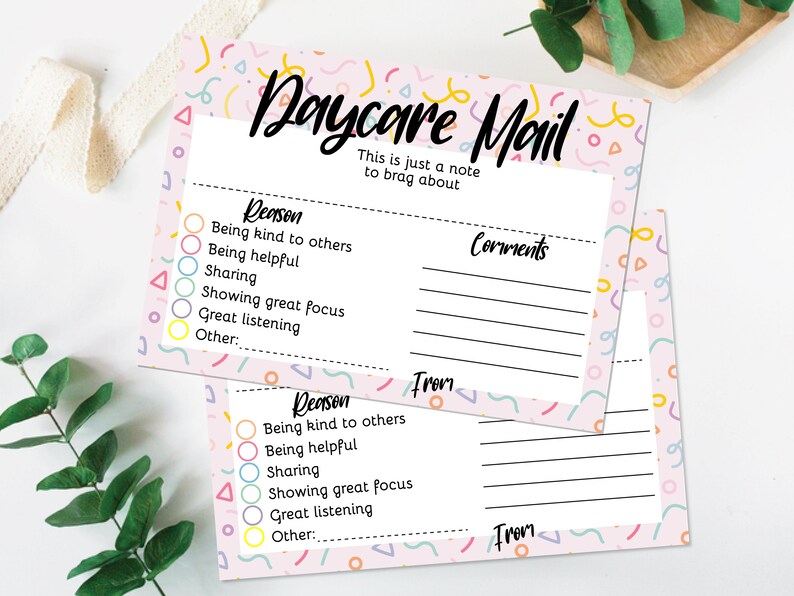 Daycare Mail
This is just a note
to brag about
Reason
Being kind to others
Being helpful
Sharing
Showing great focus
Great listening
Other:
Comments
From
Reason
Being kind to others
Being helpful
Sharing
Showing great focus
Great listening
Other:
From